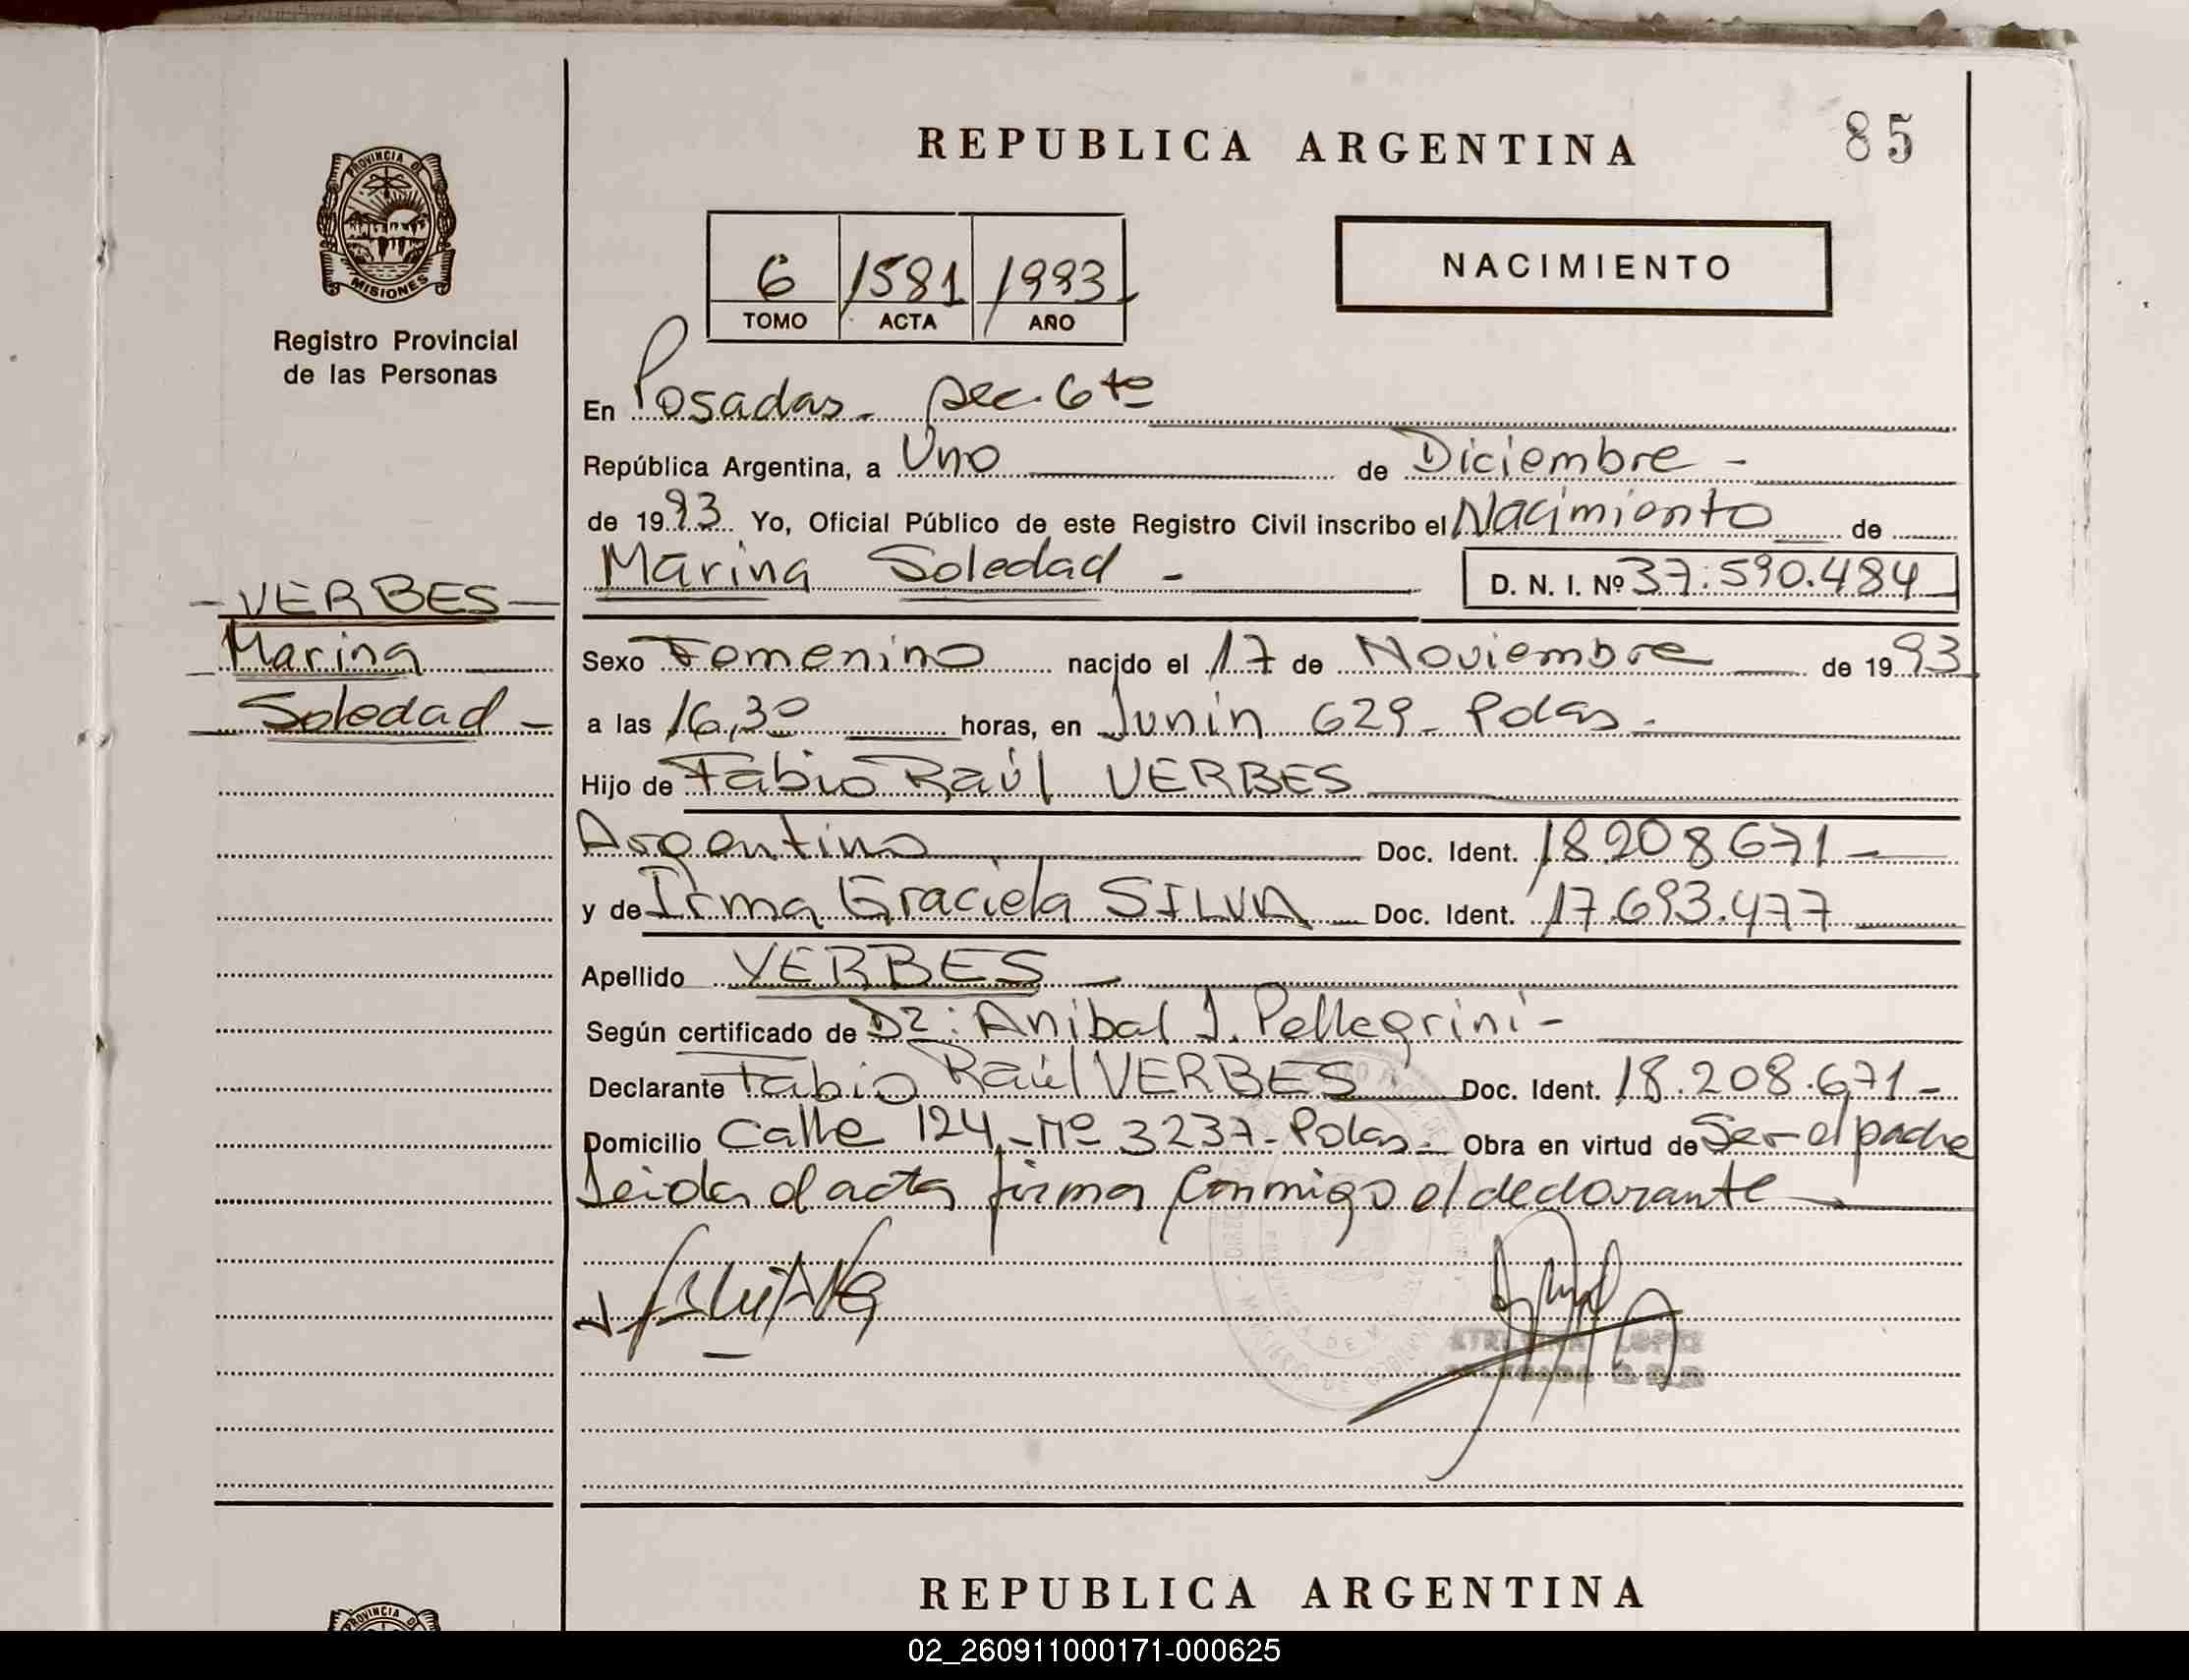 REPUBLICA ARGENTINA
85
PROVINCIA DE
MISIONES
Registro Provincial
de las Personas
6 1581 1993
TOMO ACTA AÑO
NACIMIENTO
En Posadas - sec. 6ta
República Argentina, a Uno de Diciembre -
de 1993 Yo, Oficial Público de este Registro Civil inscribo el Nacimiento de
Marina Soledad - D. N. I. Nº 37.590.484
- VERBES -
Marina
Soledad -
Sexo Femenino nacido el 17 de Noviembre de 1993
a las 16,30 horas, en Junin 629 - Pdas -
Hijo de Fabio Raúl VERBES
Argentino Doc. Ident. 18.208671 -
y de Irma Graciela SILVA Doc. Ident. 17.693.477
Apellido VERBES -
Según certificado de Dr: Anibal J. Pellegrini -
Declarante Fabio Raúl VERBES Doc. Ident. 18.208.671 -
Domicilio Calle 124 - Nº 3237 - Pdas - Obra en virtud de Ser el padre
Leida el acta firma conmigo el declarante
LOPEZ
REPUBLICA ARGENTINA
PROVINCIA D
02_260911000171-000625